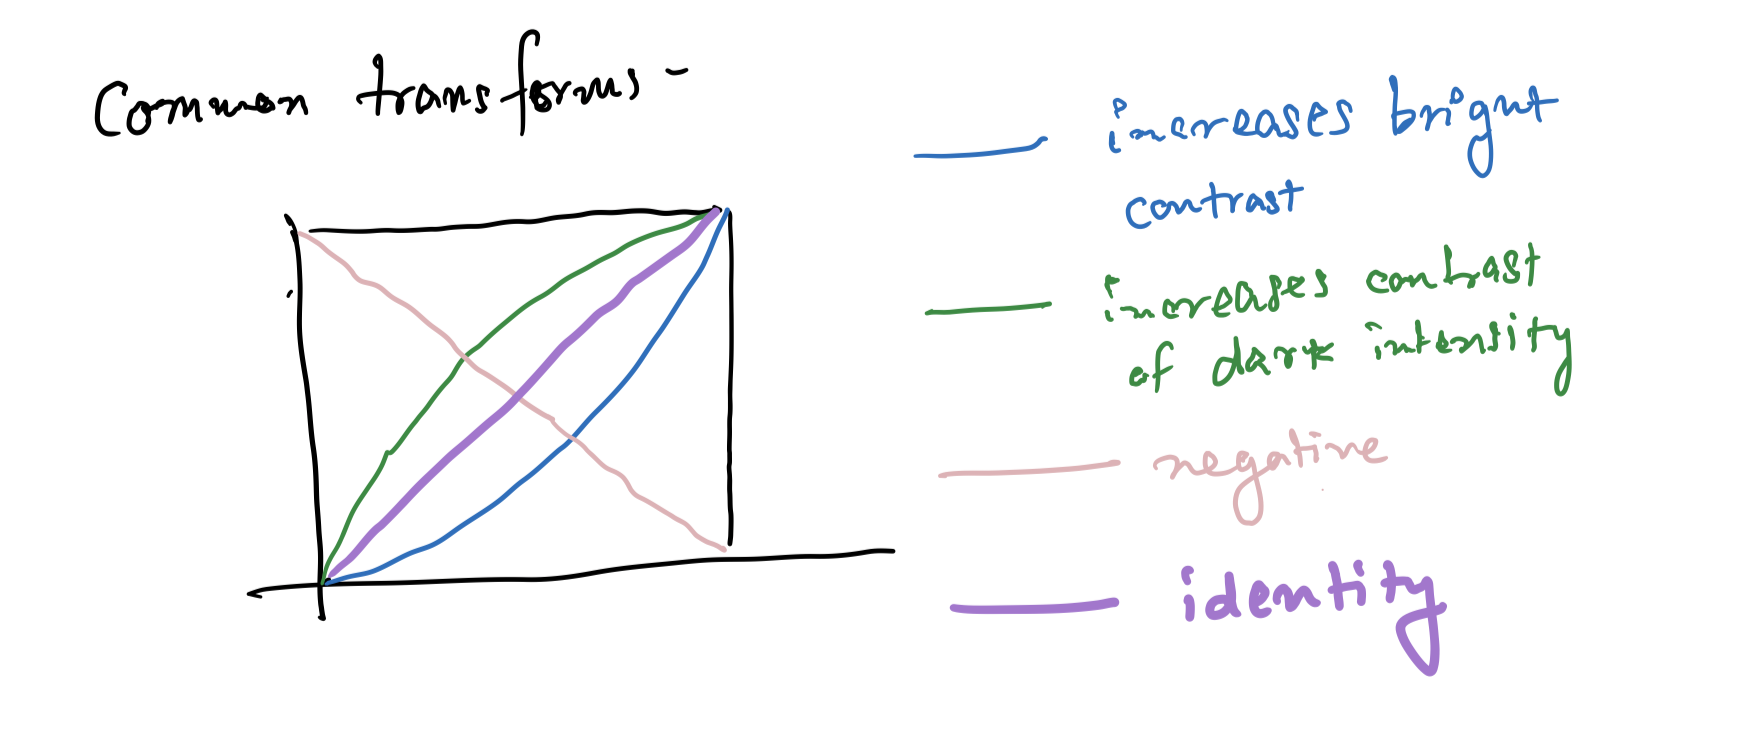 Common transforms -
increases bright
contrast
increases contrast
of dark intensity
negative
identity